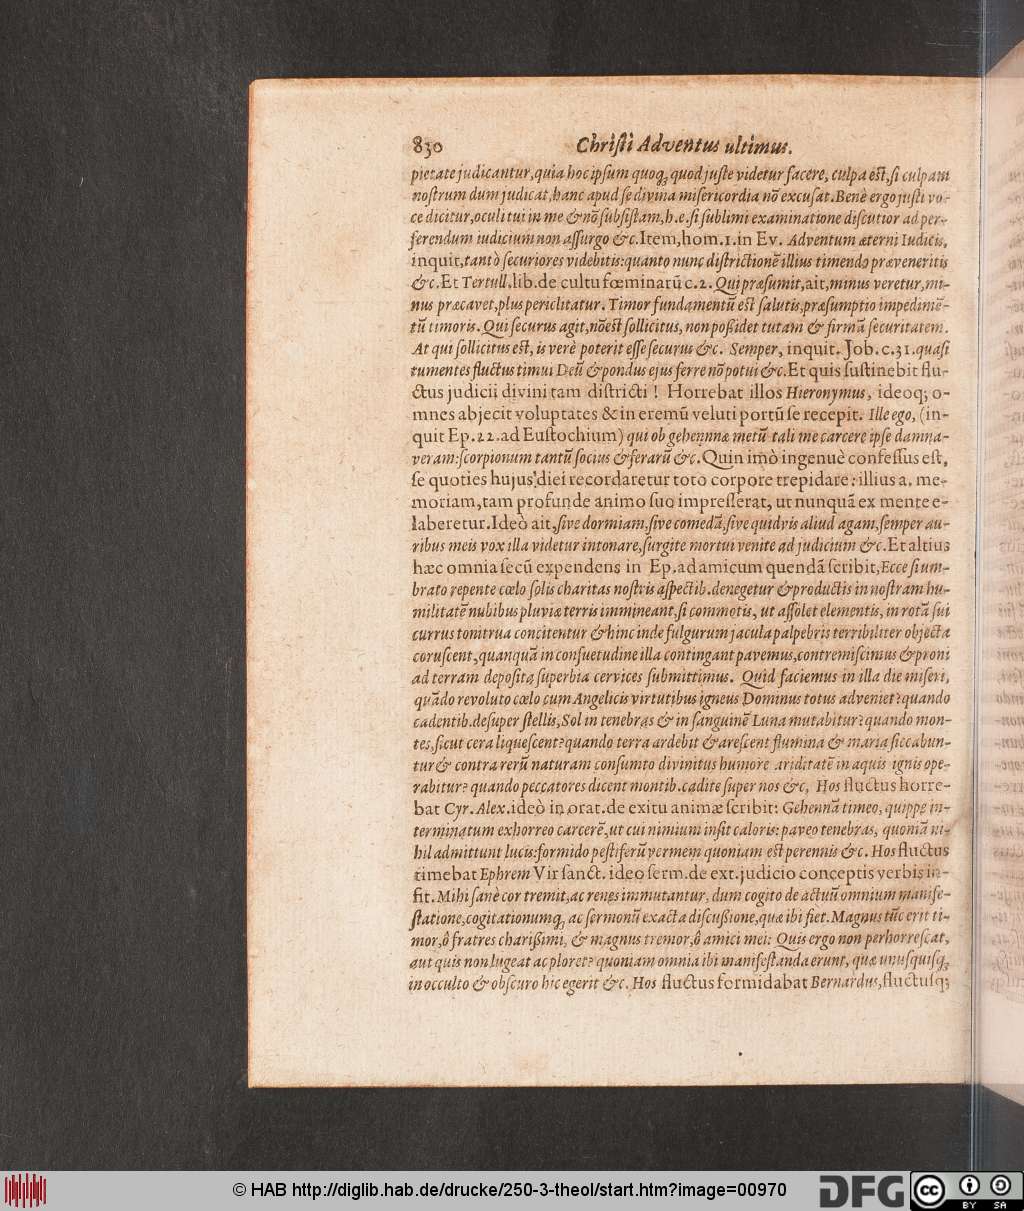 830 Chriſti Adventus ultimus.
pietate judicantur, quia hoc ipſum quoq; quod juſte videtur facere, culpa eſt, ſi culpam
noſtrum dum judicat, hanc apud ſe divina miſericordia nõ excuſat. Benè ergo juſti vo-
ce dicitur, oculi tui in me & nõ ſubſiſtam, h.e. ſi ſublimi examinatione diſcutior ad per-
ferendum iudicium non aſſurgo &c. Item, hom. 1. in Ev. Adventum æterni Iudicis,
inquit, tantò ſecuriores videbitis: quanto nunc diſtrictionẽ illius timendo præveneritis
&c. Et Tertull, lib. de cultu fœminarũ c. 2. Qui præſumit, ait, minus veretur, mi-
nus præcavet, plus periclitatur. Timor fundamentũ eſt ſalutis, præſumptio impedimẽ-
tũ timoris. Qui ſecurus agit, nõ eſt ſollicitus, non poßidet tutam & firmã ſecuritatem.
At qui ſollicitus eſt, is verè poterit eſſe ſecurus &c. Semper, inquit. Job. c. 31. quaſi
tumentes fluctus timui Deũ & pondus ejus ferre nõ potui &c. Et quis ſuſtinebit flu-
ctus judicii divini tam diſtricti! Horrebat illos Hieronymus, ideoq; o-
mnes abjecit voluptates & in eremũ veluti portũ ſe recepit. Ille ego, (in-
quit Ep. 22. ad Euſtochium) qui ob gehennæ metũ tali me carcere ipſe damna-
veram: ſcorpionum tantũ ſocius & ferarũ &c. Quin imò ingenuè confeſſus eſt,
ſe quoties hujus diei recordaretur toto corpore trepidare: illius a, me-
moriam, tam profunde animo ſuo impreſſerat, ut nunquã ex mente e-
laberetur. Ideò ait, ſive dormiam, ſive comedã, ſive quidvis aliud agam, ſemper au-
ribus meis vox illa videtur intonare, ſurgite mortui venite ad judicium &c. Et altius
hæc omnia ſecũ expendens in Ep. ad amicum quendã ſcribit, Ecce ſi um-
brato repente cœlo ſolis charitas noſtris aſpectib. denegetur & productis in noſtram hu-
militatẽ nubibus pluviæ terris immineant, ſi commotis, ut aſſolet elementis, in rotã ſui
currus tonitrua concitentur & hinc inde fulgurum jacula palpebris terribiliter objecta
coruſcent, quanquã in conſuetudine illa contingant pavemus, contremiſcimus & proni
ad terram depoſita ſuperbia cervices ſubmittimus. Quid faciemus in illa die miſeri,
quãdo revoluto cœlo cum Angelicis virtutibus igneus Dominus totus adveniet? quando
cadentib. deſuper ſtellis, Sol in tenebras & in ſanguinẽ Luna mutabitur? quando mon-
tes, ſicut cera liqueſcent? quando terra ardebit & areſcent flumina & maria ſiccabun-
tur & contra rerũ naturam conſumto divinitus humore ariditatẽ in aquis ignis ope-
rabitur? quando peccatores dicent montib. cadite ſuper nos &c, Hos fluctus horre-
bat Cyr. Alex. ideò in orat. de exitu animæ ſcribit: Gehennã timeo, quippe in-
terminatum exhorreo carcerẽ, ut cui nimium inſit caloris: paveo tenebras, quoniã ni-
hil admittunt lucis: formido peſtiferũ vermem quoniam eſt perennis &c. Hos fluctus
timebat Ephrem Vir ſanct. ideo ſerm. de ext. judicio conceptis verbis in-
fit. Mihi ſanè cor tremit, ac renes immutantur, dum cogito de actuũ omnium manife-
ſtatione, cogitationumq; ac ſermonũ exacta diſcußione, quæ ibi fiet. Magnus tũc erit ti-
mor, ô fratres charißimi, & magnus tremor, ô amici mei: Quis ergo non perhorreſcat,
aut quis non lugeat ac ploret? quoniam omnia ibi manifeſtanda erunt, quæ unuſquiſq;
in occulto & obſcuro hic egerit &c. Hos fluctus formidabat Bernardus, fluctuſq;
© HAB http://diglib.hab.de/drucke/250-3-theol/start.htm?image=00970
DFG
cc BY SA